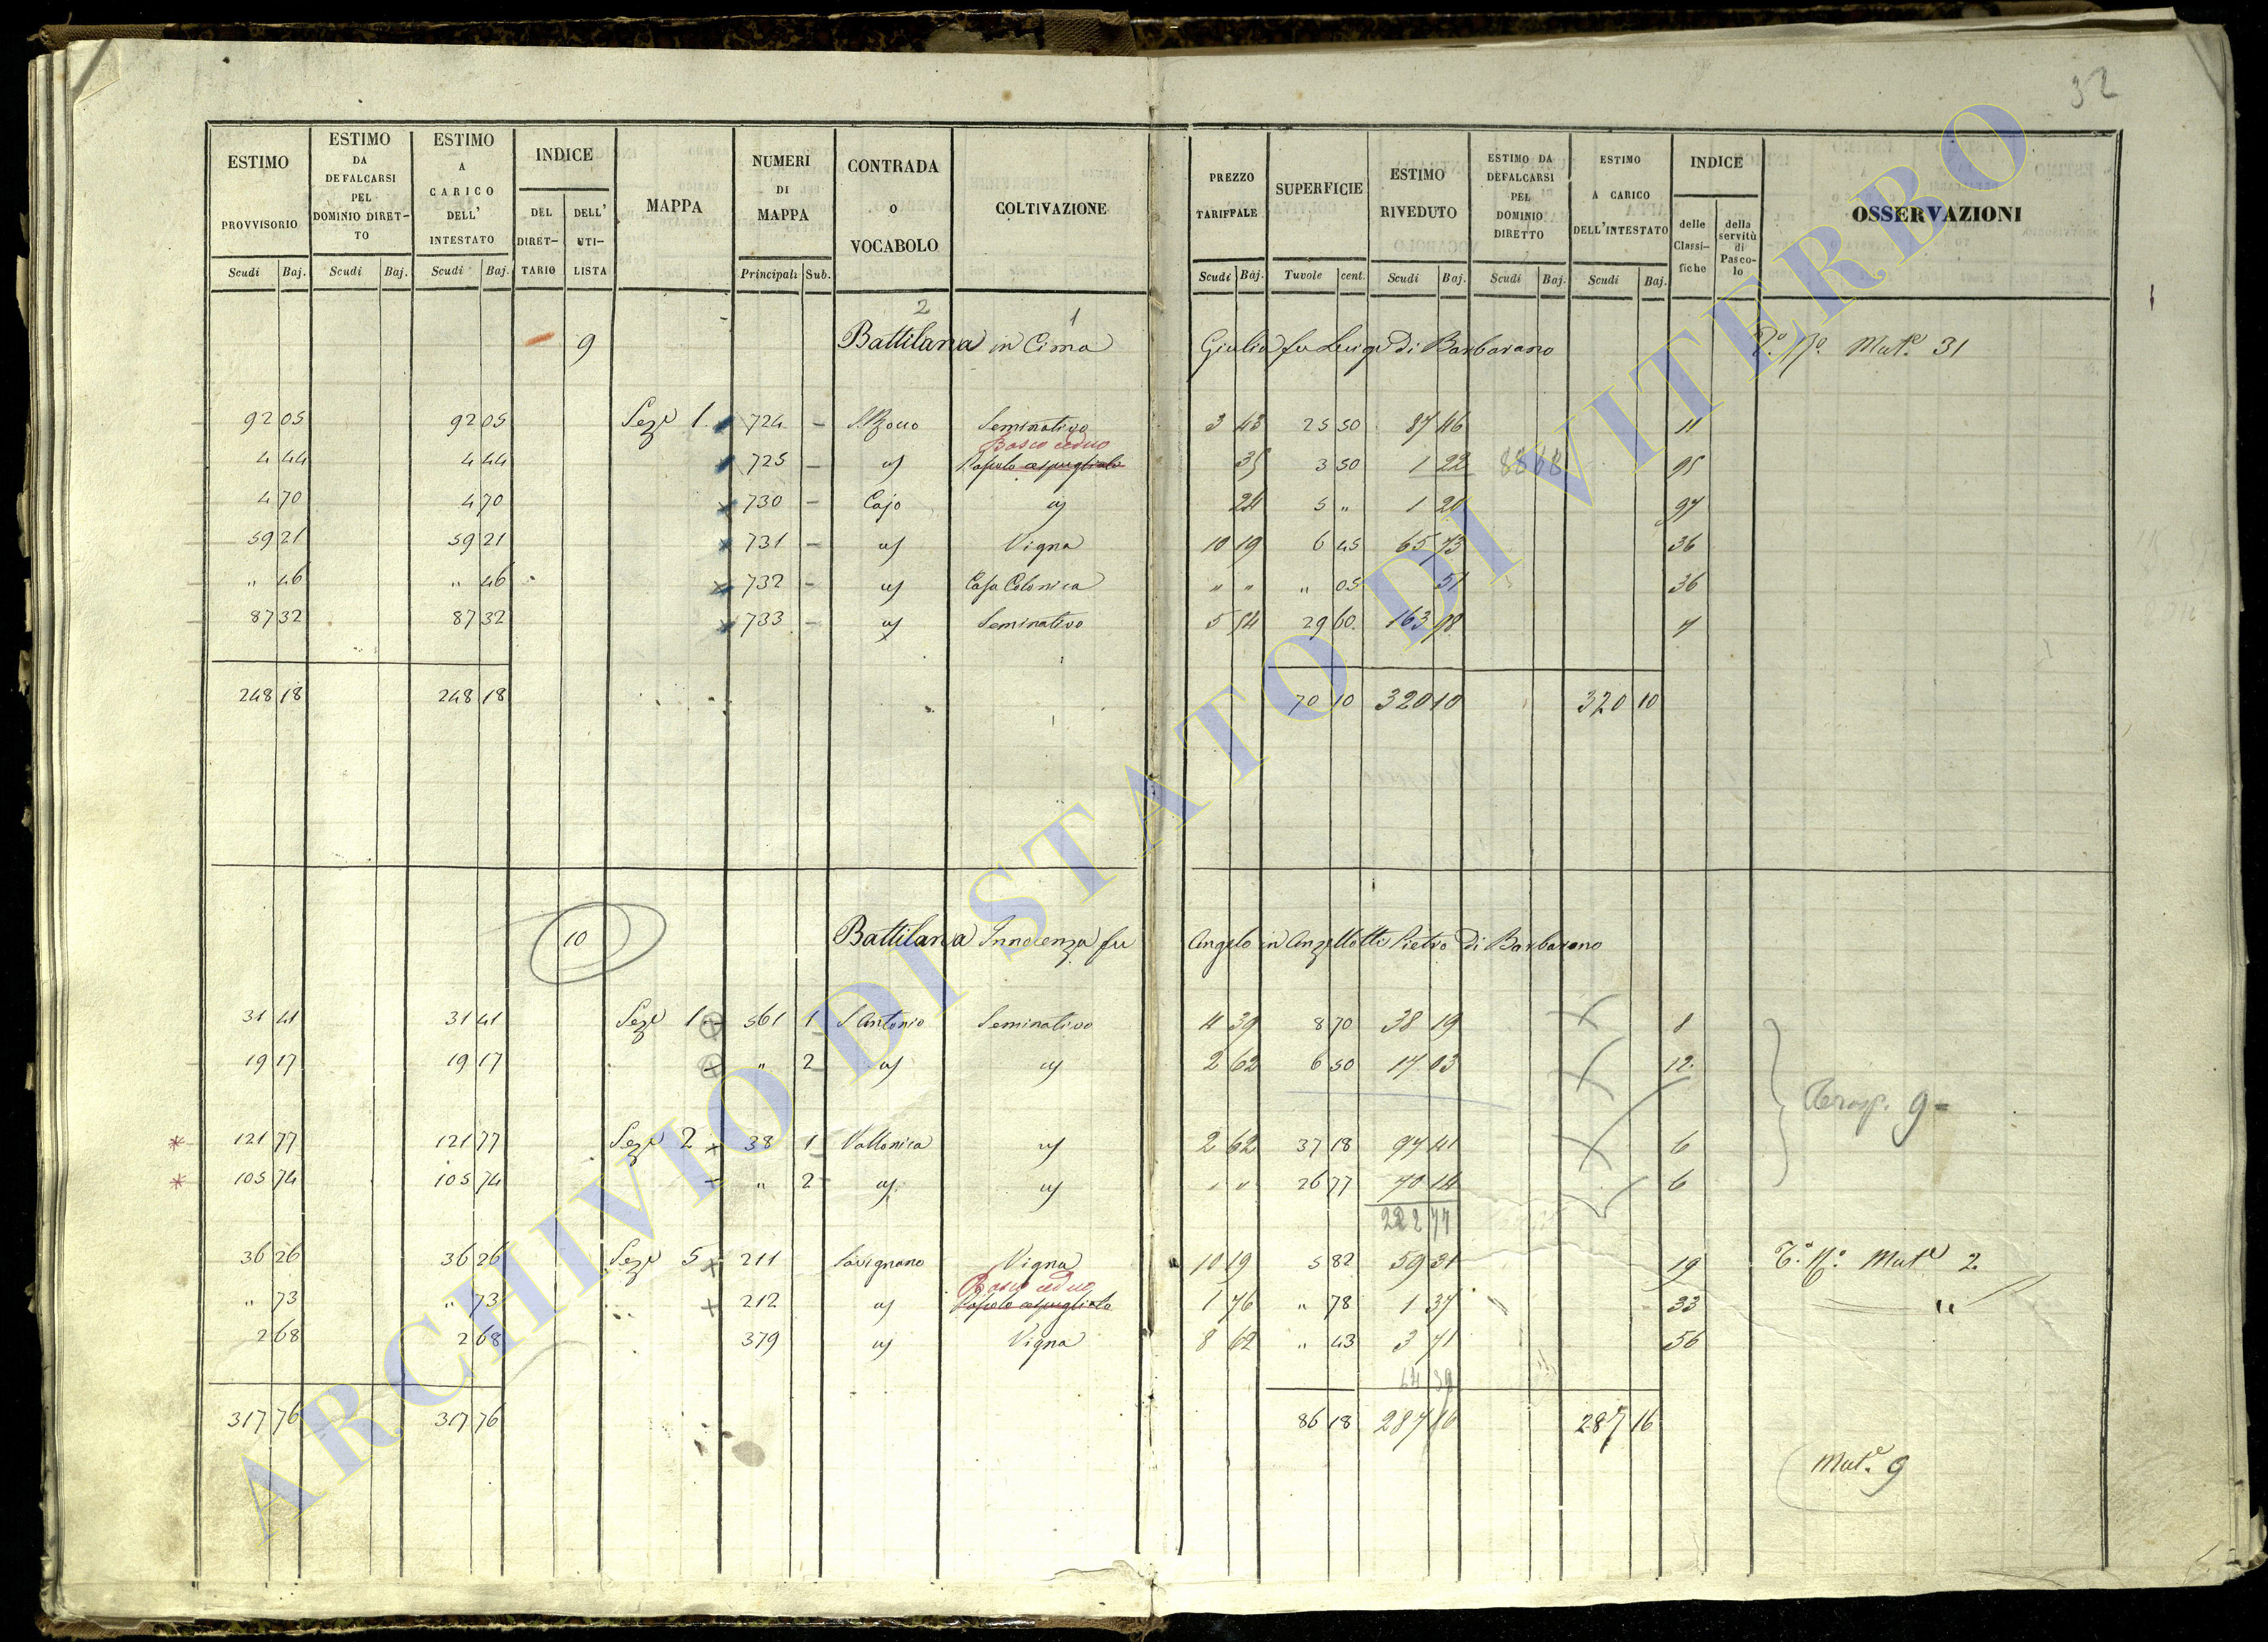 32
ESTIMO PROVVISORIO
ESTIMO DA DEFALCARSI PEL DOMINIO DIRET-TO
ESTIMO A CARICO DELL' INTESTATO
INDICE
DEL DIRET-TARIO
DELL' UTI-LISTA
MAPPA
NUMERI DI MAPPA
CONTRADA O VOCABOLO
COLTIVAZIONE
PREZZO TARIFFALE
SUPERFICIE
ESTIMO RIVEDUTO
ESTIMO DA DEFALCARSI PEL DOMINIO DIRETTO
ESTIMO A CARICO DELL'INTESTATO
INDICE
delle Classi-fiche
della servitù di Pasco-lo
OSSERVAZIONI
Scudi Baj. Scudi Baj. Scudi Baj. Principali Sub. Scudi Baj. Tavole cent. Scudi Baj. Scudi Baj. Scudi Baj.
2 1
9 Battilana in Cima Giulia fu Luigi di Barbarano Mut.e 31
92 05 92 05 Seze 1. 724 – S. Rocco Seminativo 3 43 25 50 87 46 11
Bosco ceduo
4 44 4 44 725 – us Pascolo cespugliato 35 3 50 1 22 88 68 95
4 70 4 70 730 – Cajo us 24 5 " 1 20 97
59 21 59 21 731 – us Vigna 10 19 6 45 65 73 36
" 46 " 46 732 – us Casa Colonica " " " 05 51 36
87 32 87 32 733 – us Seminativo 5 54 29 60 163 98 7
248 18 248 18 70 10 320 10 320 10
10 Battilana Innocenza fu Angelo in Anzellotti Pietro di Barbarano
31 41 31 41 Seze 1 561 1 S. Antonio Seminativo 4 39 8 70 38 19 8
19 17 19 17 " 2 us us 2 62 6 50 17 03 12.
9=
* 121 77 121 77 Seze 2 38 1 Vallonica us 2 62 37 18 97 41 6
* 105 74 105 74 " 2 us us " " 26 77 70 14 6
222 77
36 26 36 26 Seze 5 211 Savignano Vigna 10 19 5 82 59 31 19 Mute 2
Bosco ceduo
" 73 " 73 212 us Pascolo cespugliato 1 76 " 78 1 37 33 "
2 68 2 68 379 us Vigna 8 62 " 43 3 71 56
64 39
317 76 317 76 86 18 287 16 287 16
Mut.e 9
ARCHIVIO DI STATO DI VITERBO